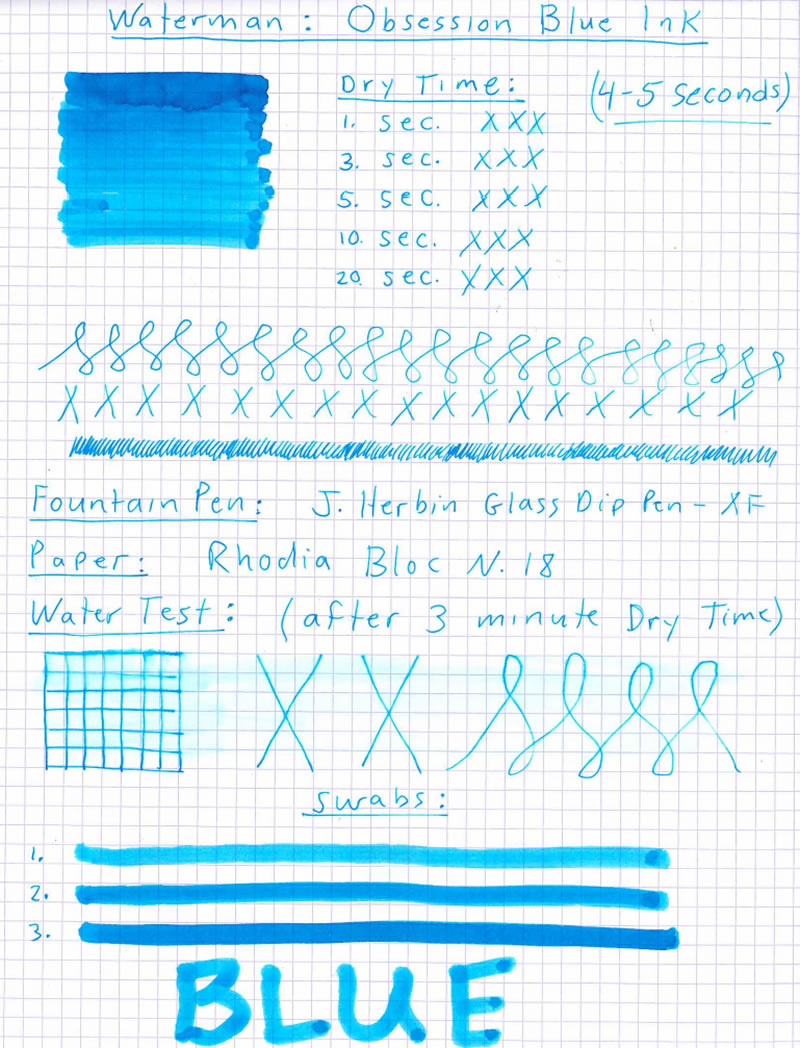 Waterman: Obsession Blue Ink
Dry Time: (4-5 seconds)
1. sec. XXX
3. sec. XXX
5. sec. XXX
10. sec. XXX
20. sec. XXX
X X X X X X X X X X X X X X X X X
Fountain Pen: J. Herbin Glass Dip Pen - XF
Paper: Rhodia Bloc N. 18
Water Test: (after 3 minute Dry Time)
X X
Swabs:
1.
2.
3.
BLUE